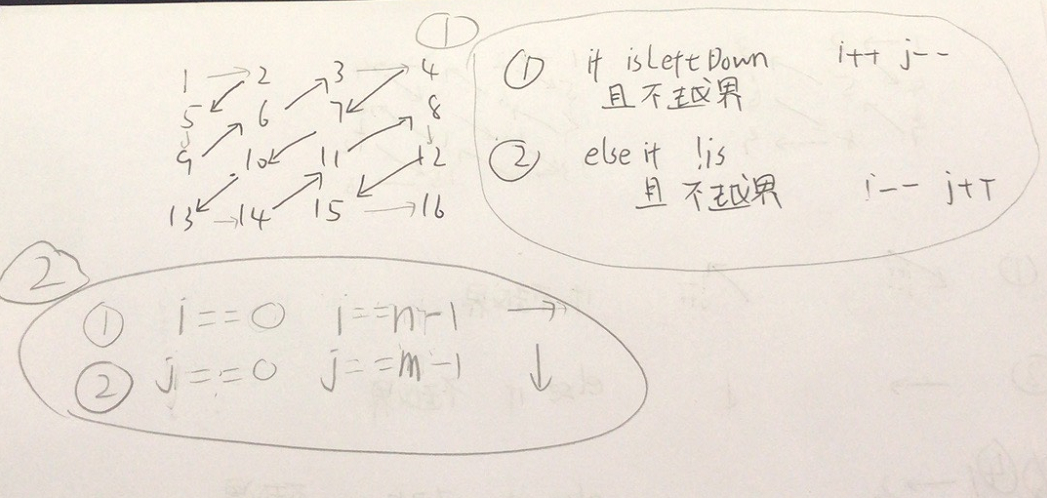 ①
1 → 2 3 → 4
5 6 7 8
9 10 11 12
13 → 14 15 → 16
① if isLeftDown i++ j--
且不越界
② else if !is
且不越界 i-- j++
②
① i==0 i==n-1 →
② j==0 j==m-1 ↓